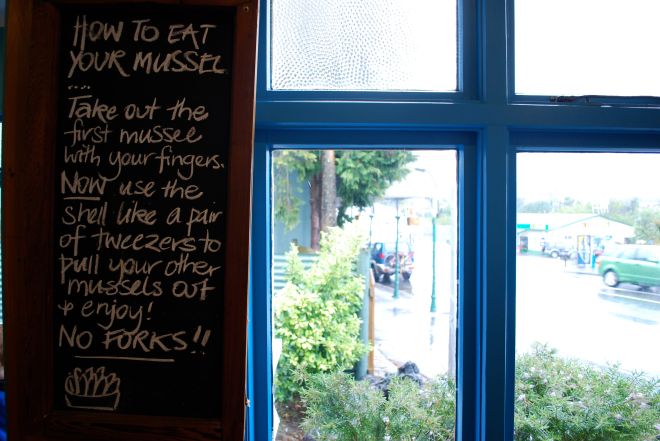 HOW TO EAT
YOUR MUSSEL
.....
Take out the
first mussel
with your fingers.
NOW use the
shell like a pair
of tweezers to
pull your other
mussels out
& enjoy!
NO FORKS!!